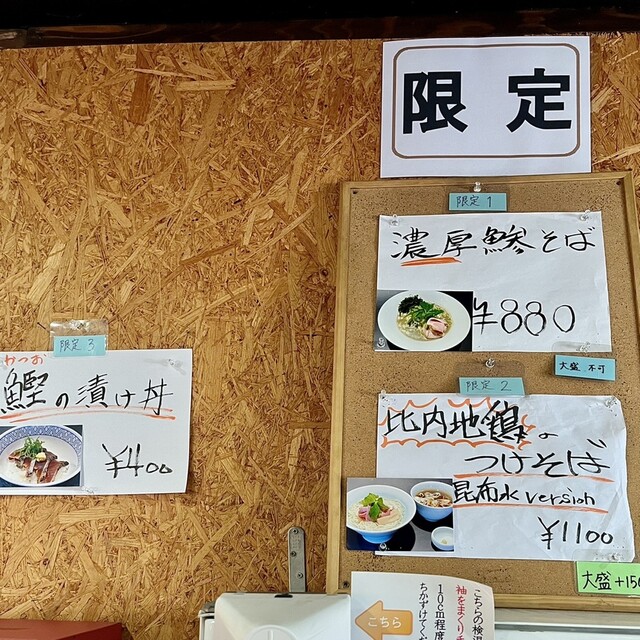 限定
限定 1
濃厚鯵そば
¥880
大盛 不可
限定 2
比内地鶏の
つけそば
昆布水 version
¥1100
大盛+150
限定 3
かつお
鰹の漬け丼
¥400
こちらの検温
袖をまくり
10cm程度
ちかずけてくだ
こちら